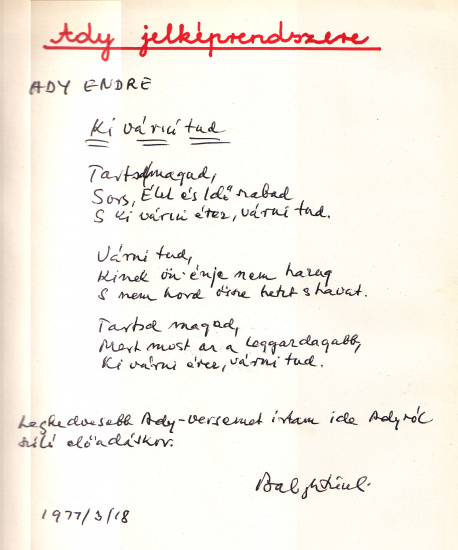 Ady jelképrendszere
ADY ENDRE
Ki várni tud
Tartsd magad,
Sors, Élet és Idő szabad
S ki várni érez, várni tud.
Várni tud,
Kinek ön-énje nem hazug
S nem hord össze hetet s havat.
Tartsd magad,
Mert most az a leggazdagabb,
Ki várni érez, várni tud.
Legkedvesebb Ady-versemet írtam ide Adyról
szóló előadáskor.
1977/3/18